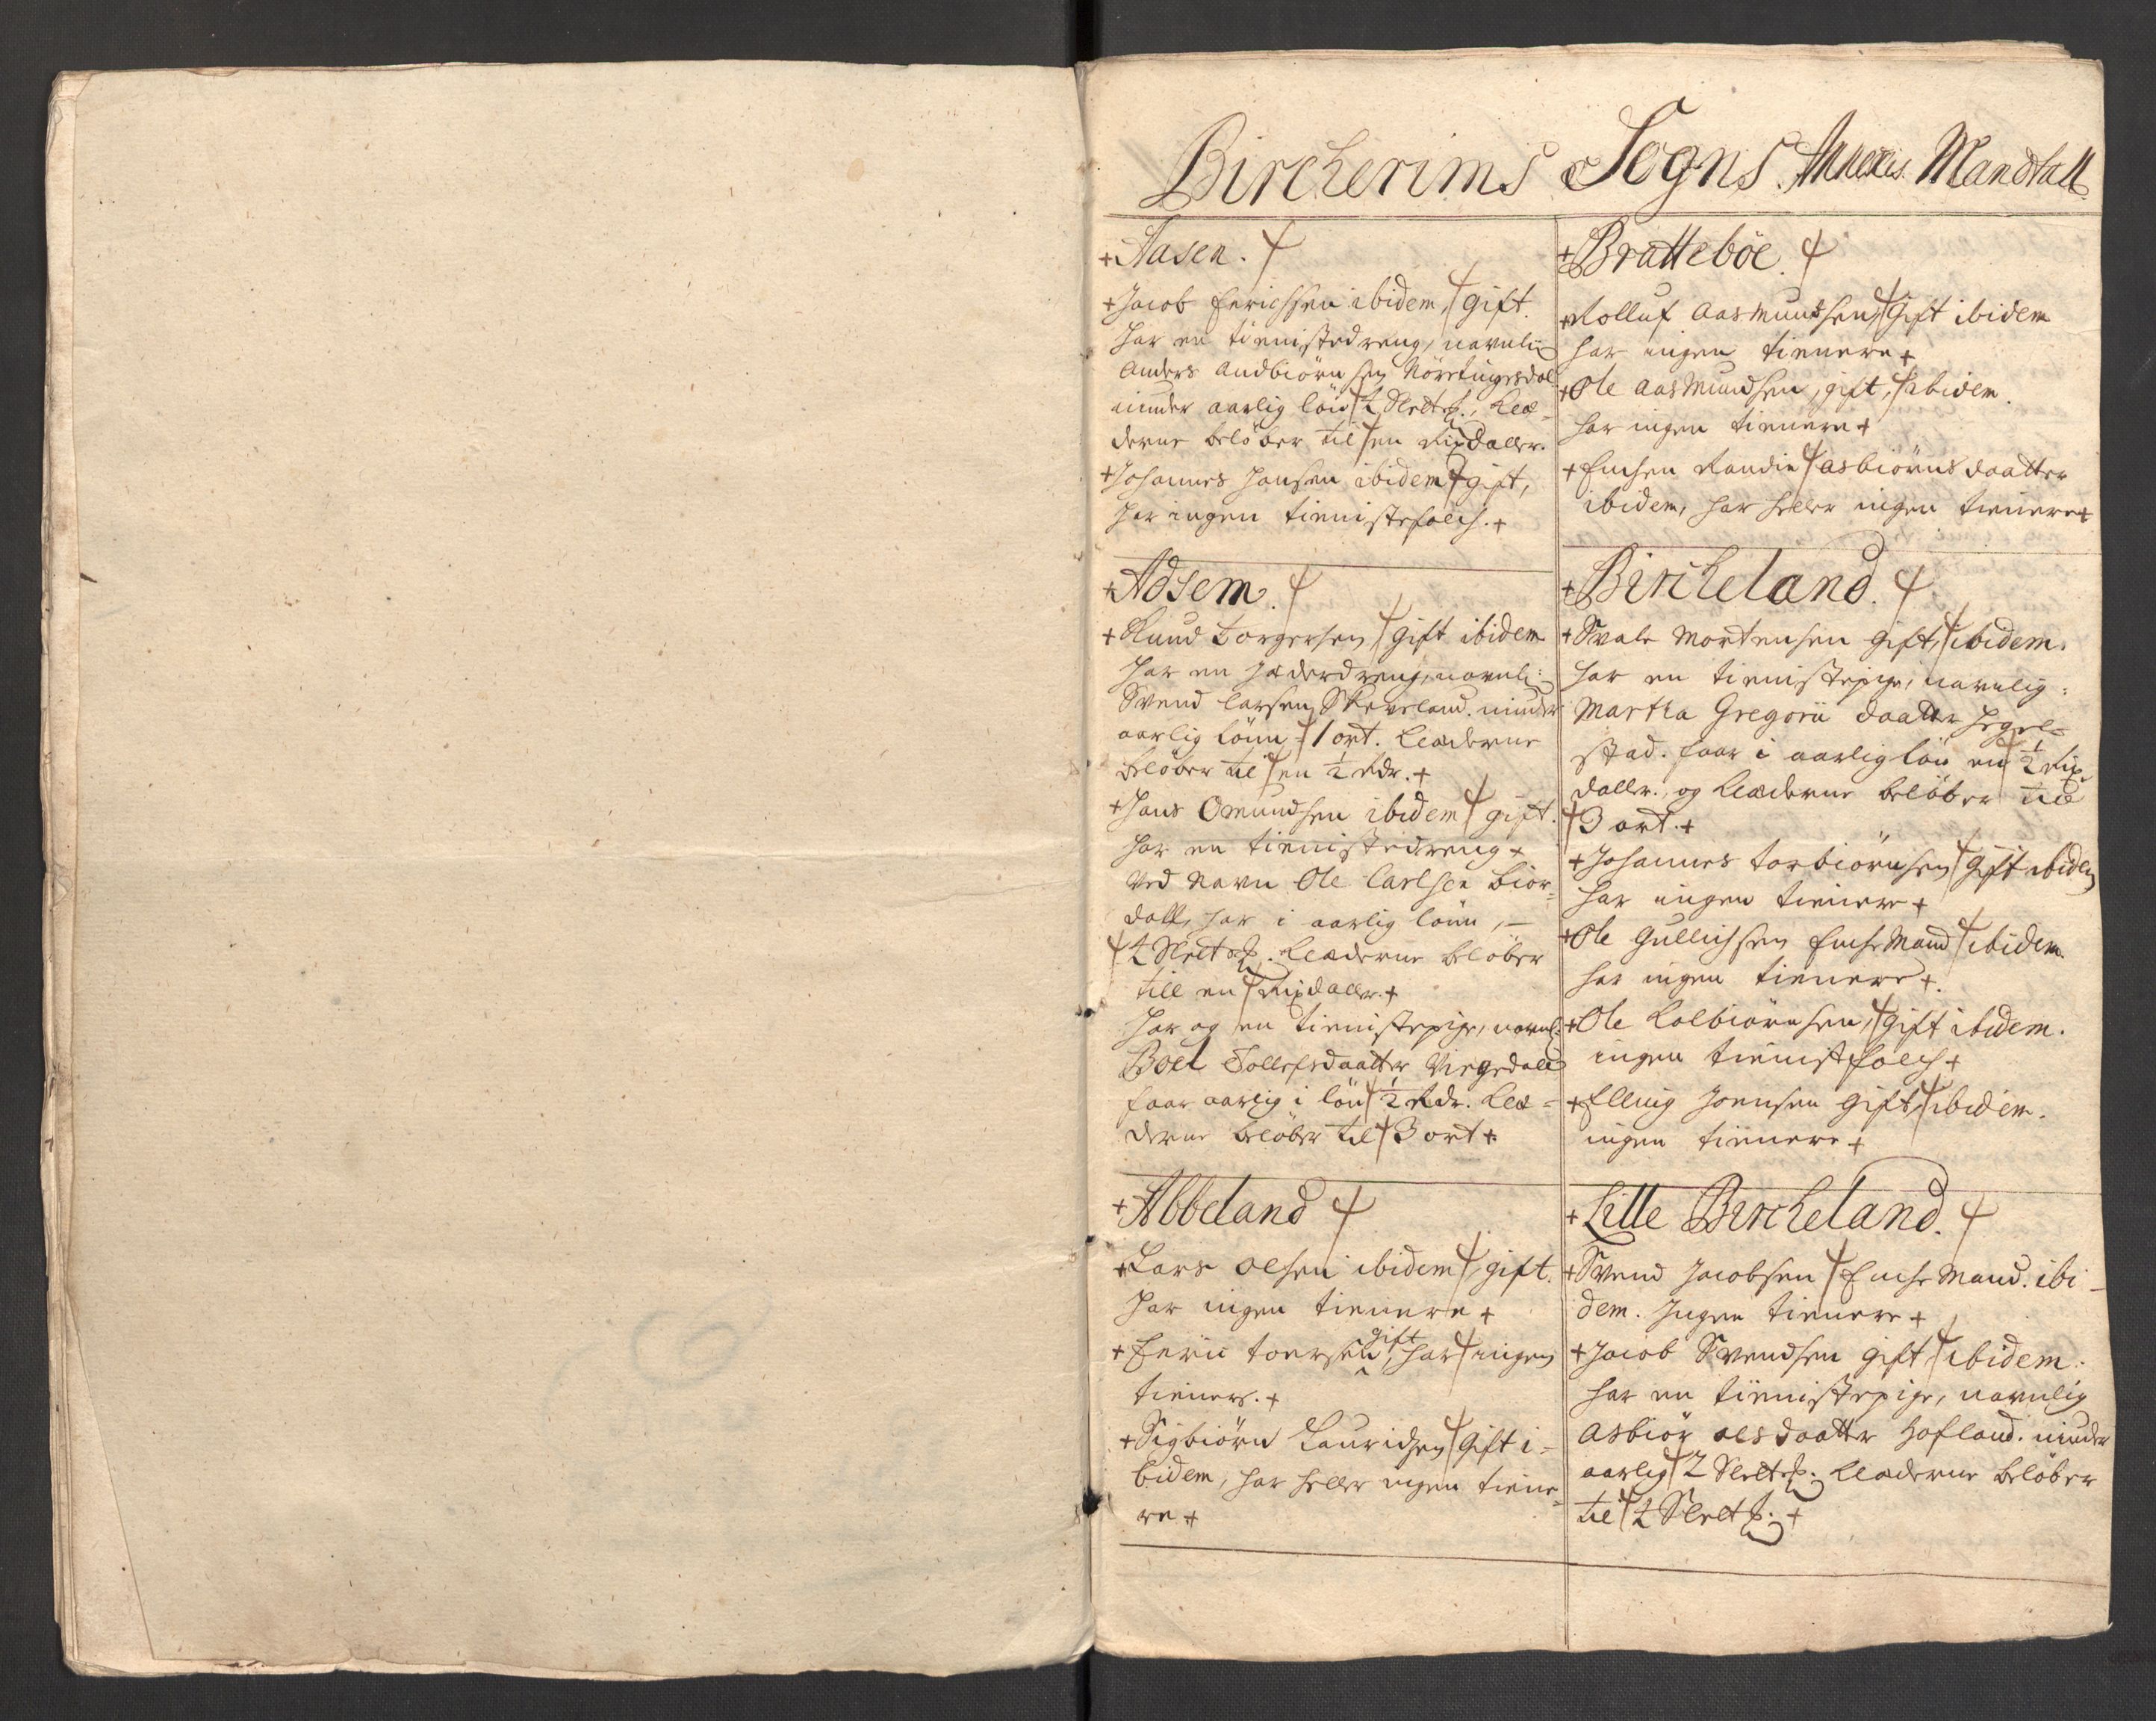 Bircherims Sogns Annexis Mandtall
+ Aasen.
+ Jacob Erichssen ibidem, gift.
har en tienistedreng, navnlig
Anders Andbiørnsen
under aarlig løn 2 Slet d. Klæ-
derne beløber til en Rixdaller.
+ Johannes Hansen ibidem gift,
har ingen tienistefolch. +
+ Adsem.
+ Knud Torgersen gift ibidem
har en dreng, navnli:
Svend Larsen Skeveland. nyder
aarlig lønn - 1 ort. Klæderne
beløber til en ½ Rdr. +
+ Hans Omundsen ibidem gift.
har en tienistedreng +
ved Navn Ole Carlsen Bior-
dall, har i aarlig lønn, -
2 Slet d. Klæderne beløber
till en Rixdaller. +
har og en tienistepige, navnl:
Boel Tollefsdaatter
faar aarlig i løn ½ Rdr. Klæ-
derne beløber til 3 ort +
+ Abbeland
+ Lars Olsen ibidem gift.
har ingen tienere +
+ Eric Toersen, gift har ingen
tienere. +
+ Sigbiørn Lauridsen gift i-
bidem, har heller ingen tiene-
re +
+ Brattebøe.
+ Rolluf Aasmundsen, gift ibidem
har ingen tienere +
+ Ole Aasmundsen, gift, ibidem.
har ingen tienere +
+ Enchen Randie Asbiørnsdaatter
ibidem, har heller ingen tienere +
+ Bircheland.
+ Svale Mortensen gift, ibidem.
har en tienistepige, navnlig:
Martha Gregorii daatter Hegel-
stad. faar i aarlig løn en ½ Rix-
daller. og Klæderne beløber till
3 ort. +
+ Johannes Torbiørnsen gift ibidem
har ingen tienere +
+ Ole Gullichsen Enche Mand ibidem.
har ingen tienere +.
+ Ole Kolbiørnsen, gift ibidem.
ingen tienistfolch +
+ Elling Joensen gift, ibidem.
ingen tienere +
+ Lille Bircheland.
+ Svend Jacobsen Enche Mand. ibi-
dem. Ingen tienere +
+ Jacob Svendsen gift, ibidem.
har en tienistepige, navnlig
Asbiør Olsdaatter Hofland. nyder
aarlig 2 Slet d. Klæderne beløber
til 2 Slet d. +